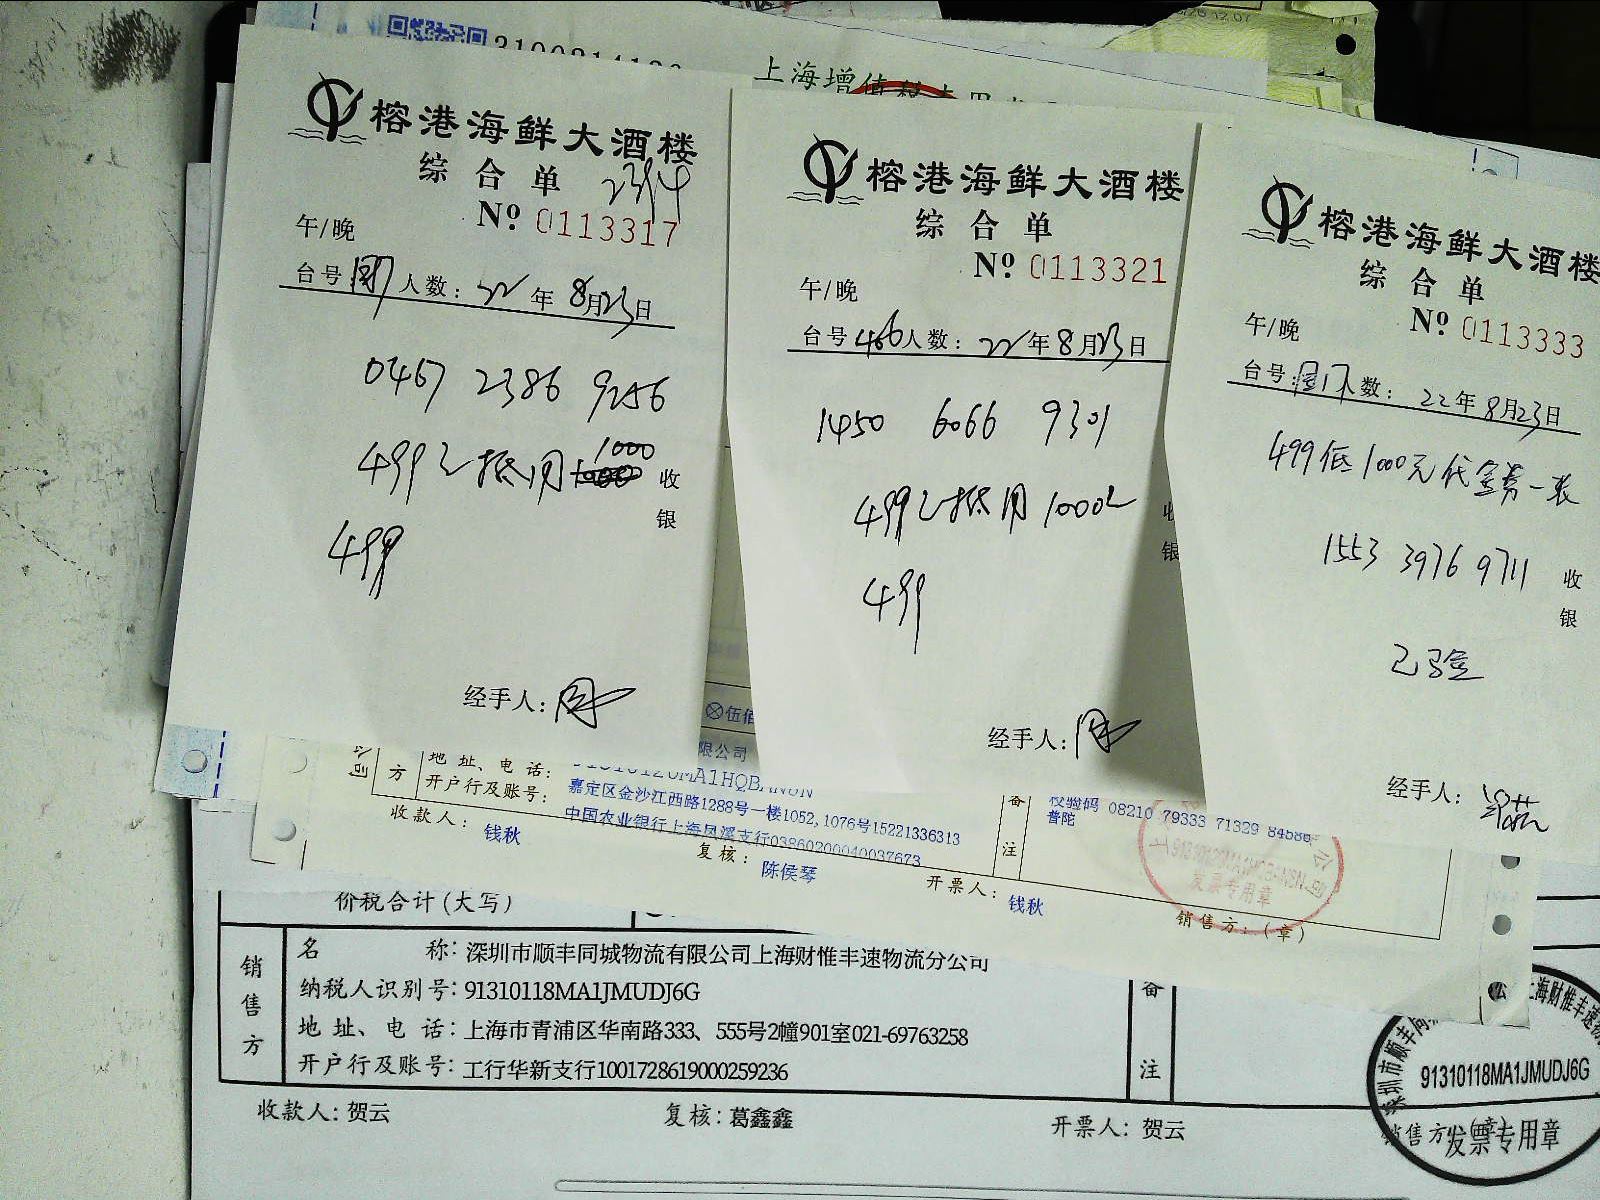 上海增值税
榕港海鲜大酒楼
综合单
2314
№ 0113317
午/晚
台号 人数: 22年8月23日
0467 2386 9256
499元抵用1000
收
银
499
经手人:
榕港海鲜大酒楼
综合单
№ 0113321
午/晚
台号466人数: 22年8月23日
1450 6066 9301
499元抵用1000元
收
银
499
经手人:
榕港海鲜大酒楼
综合单
№ 0113333
午/晚
台号: 人数: 22年8月23日
499低1000元代金券一张
1553 3976 9711
收
银
已验
经手人:
ⓧ伍佰
限公司
方
地址、电话:
嘉定区金沙江西路1288号一楼1052,1076号15221336313
开户行及账号:
中国农业银行上海凤溪支行03860200040037673
备
注
校验码 08210 79333 71329 84586
普陀
收款人: 钱秋
复核: 陈侯琴
开票人: 钱秋
销售方:(章)
发票专用章
价税合计(大写)
销售方
名称: 深圳市顺丰同城物流有限公司上海财惟丰速物流分公司
纳税人识别号: 91310118MA1JMUDJ6G
地址、电话: 上海市青浦区华南路333、555号2幢901室021-69763258
开户行及账号: 工行华新支行1001728619000259236
备
注
收款人: 贺云
复核: 葛鑫鑫
开票人: 贺云
销售方:(章)
91310118MA1JMUDJ6G
发票专用章